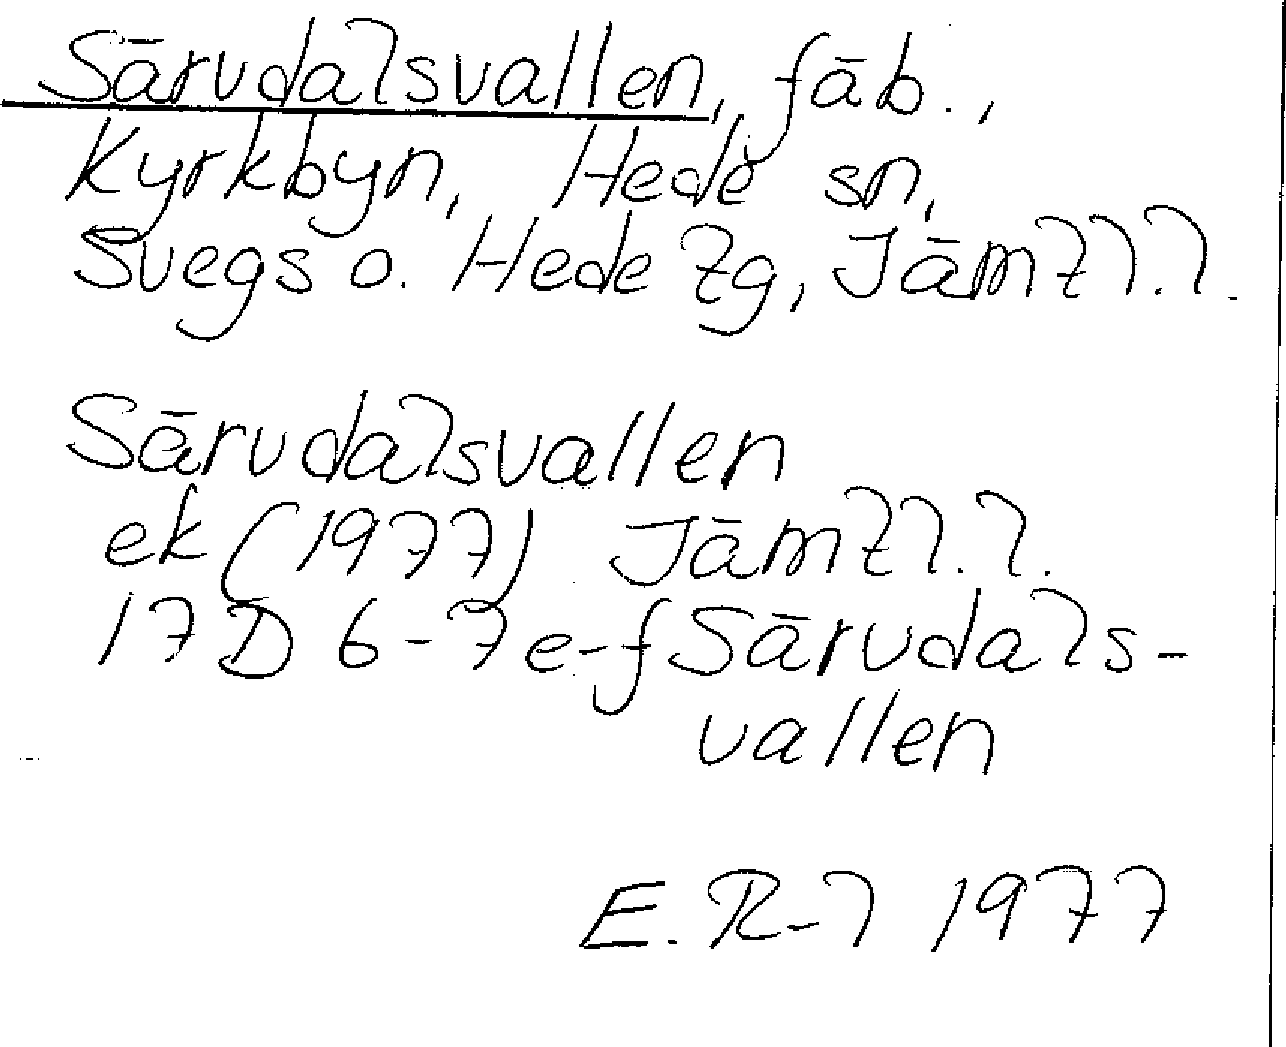 Särvdalsvallen, fäb.,
Kyrkbyn, Hede sn,
Svegs o. Hede tg, Jämtl.l.
Särvdalsvallen
ek (1977) Jämtl.l.
17D 6-7e-f Särvdals-
vallen
E. R-l 1977